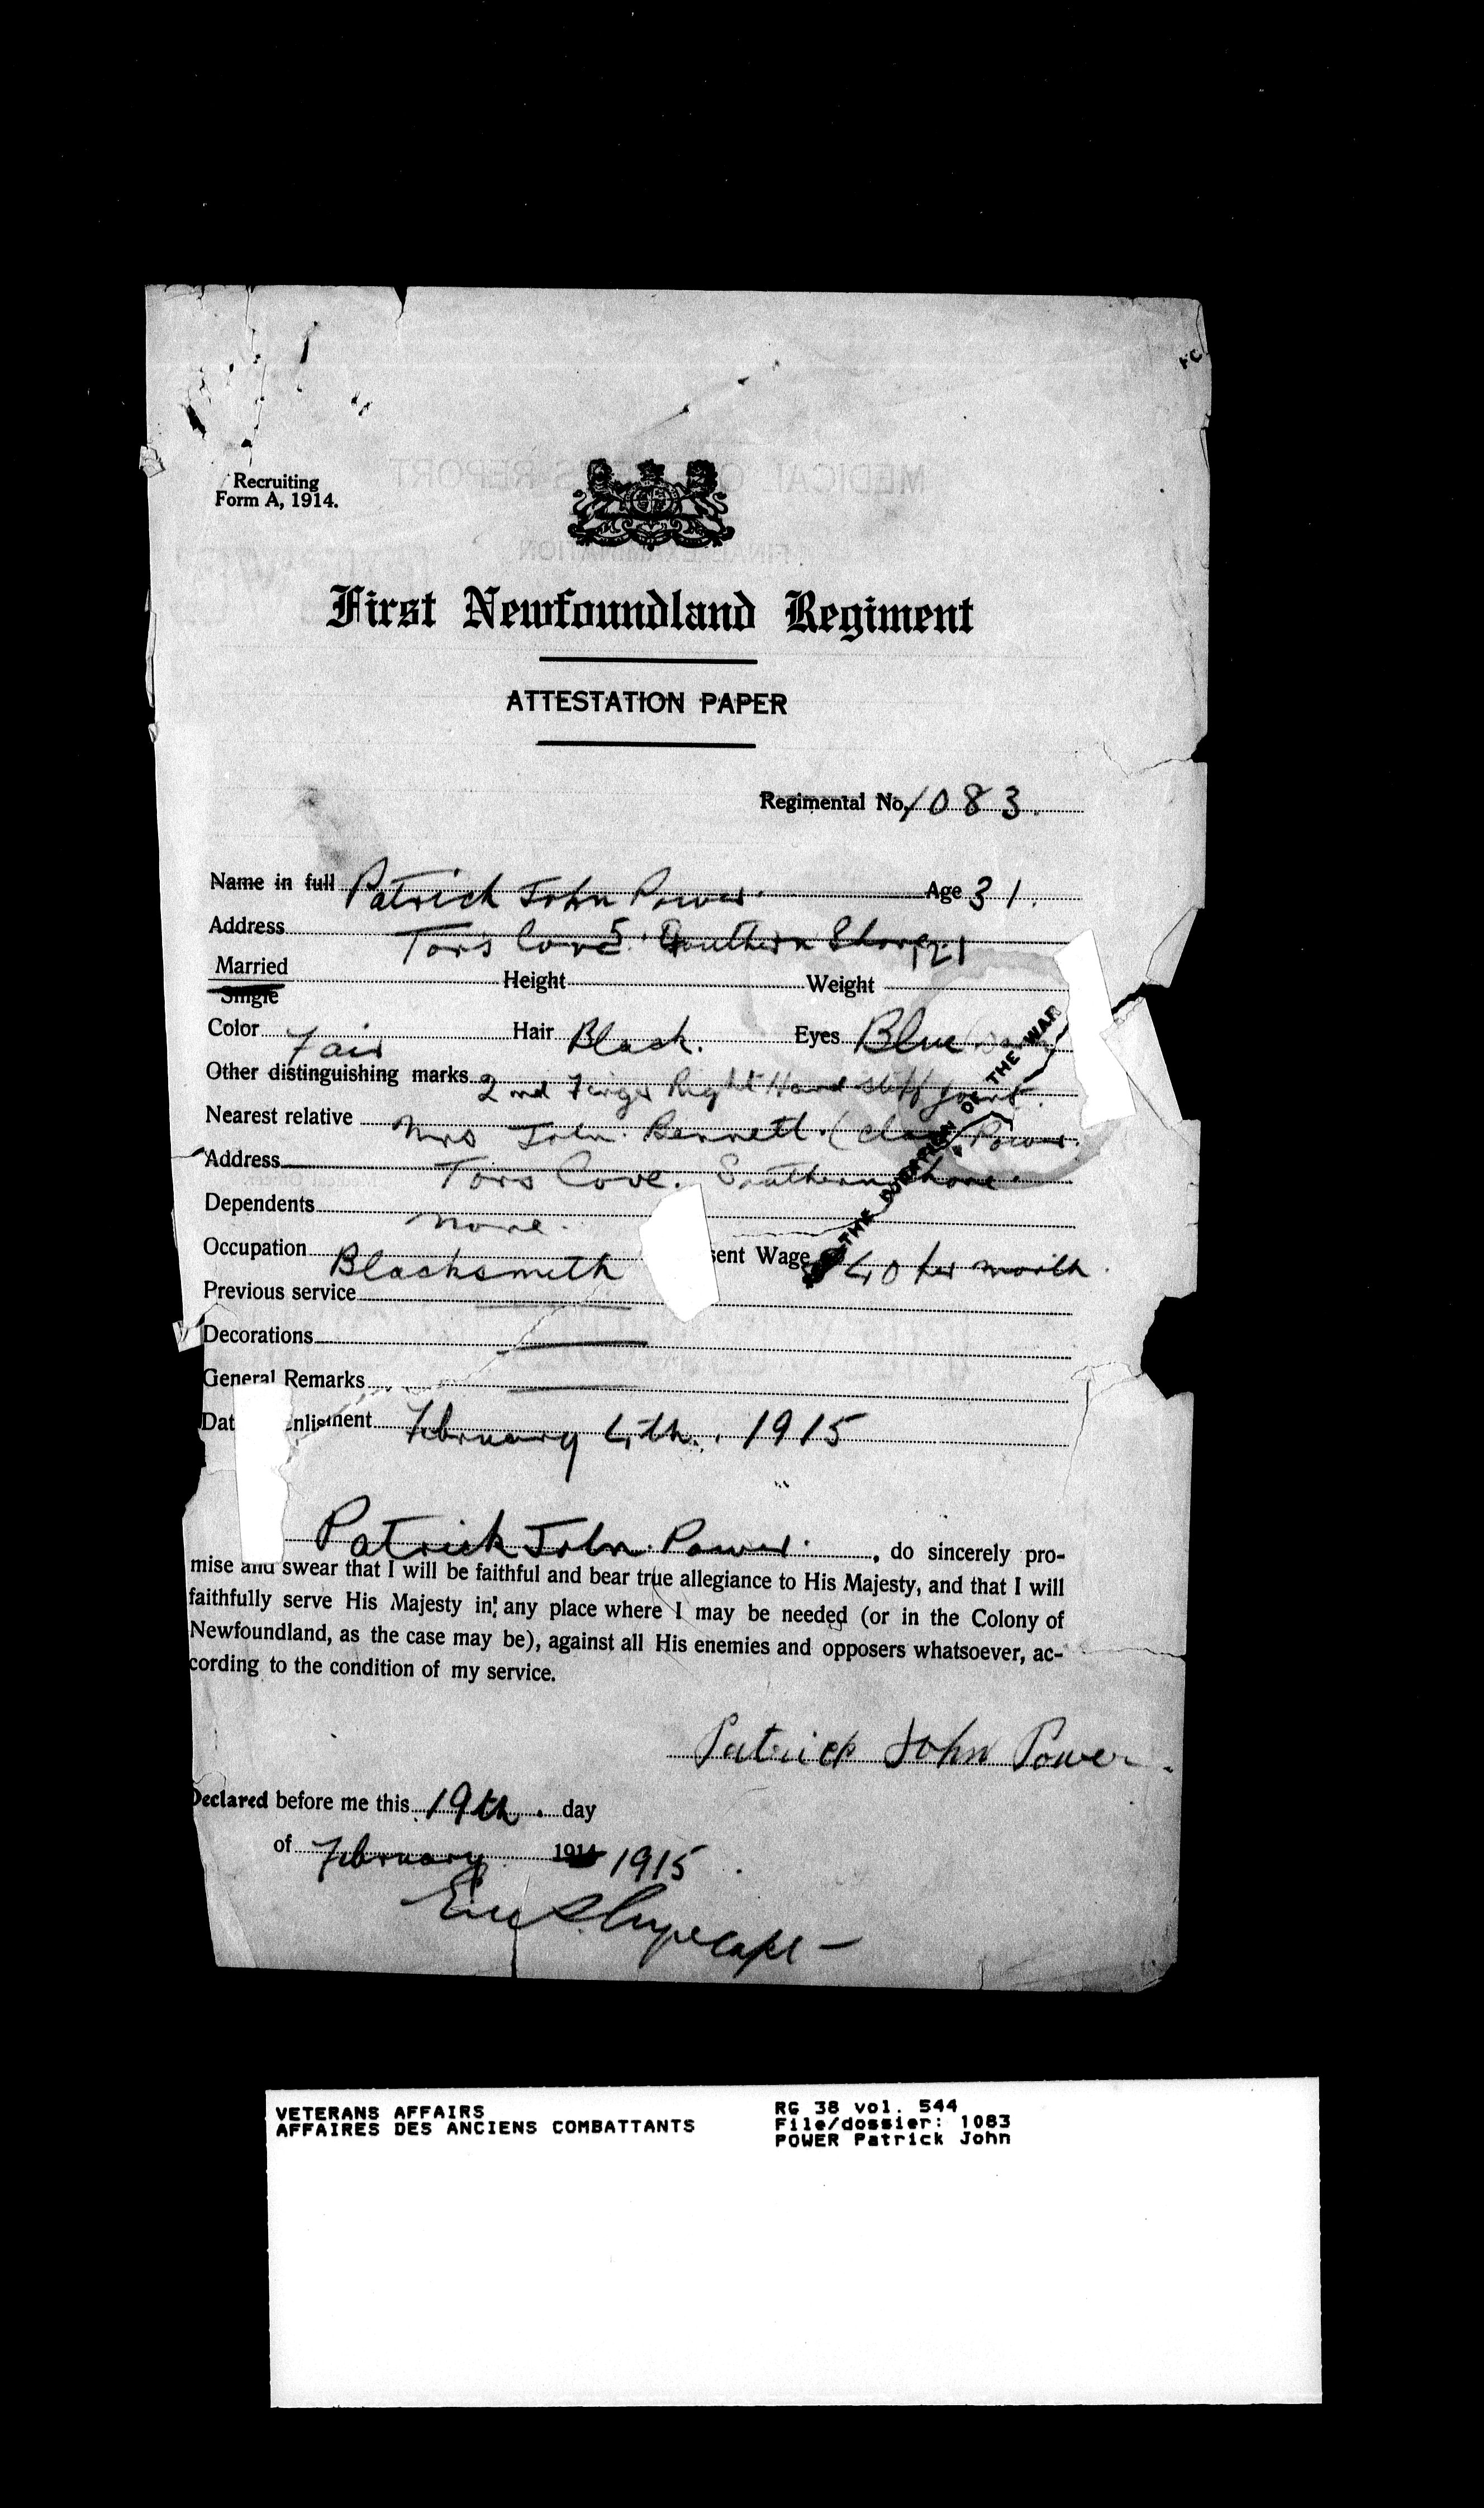 Recruiting
Form A, 1914.
First Newfoundland Regiment
ATTESTATION PAPER
Regimental No. 1083.
Name in full Patrick John Power. Age 31.
Address Tors Cove Southern Shore
Married Height 5 9 Weight 121
Single
Color Fair Hair Black. Eyes Blue
Other distinguishing marks 2nd Finger Right Hand stiff joint.
Nearest relative Mrs John Bennett. ( Power.
Address Tors Cove. Southern Shore.
Dependents none.
Occupation Blacksmith sent Wage $40 per month.
Previous service
Decorations
General Remarks
Dat enlistment February 4th. 1915
THE DURATION OF THE WAR
Patrick John Power. , do sincerely pro-
mise and swear that I will be faithful and bear true allegiance to His Majesty, and that I will
faithfully serve His Majesty in any place where I may be needed (or in the Colony of
Newfoundland, as the case may be), against all His enemies and opposers whatsoever, ac-
cording to the condition of my service.
Patrick John Power.
Declared before me this 19th. day
of February 1914 1915
Capt
VETERANS AFFAIRS
AFFAIRES DES ANCIENS COMBATTANTS
RG 38 vol. 544
File/dossier: 1083
POWER Patrick John